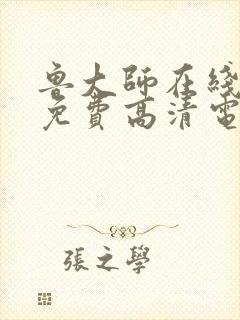 鲁大師在綫
免費高清電
張之學